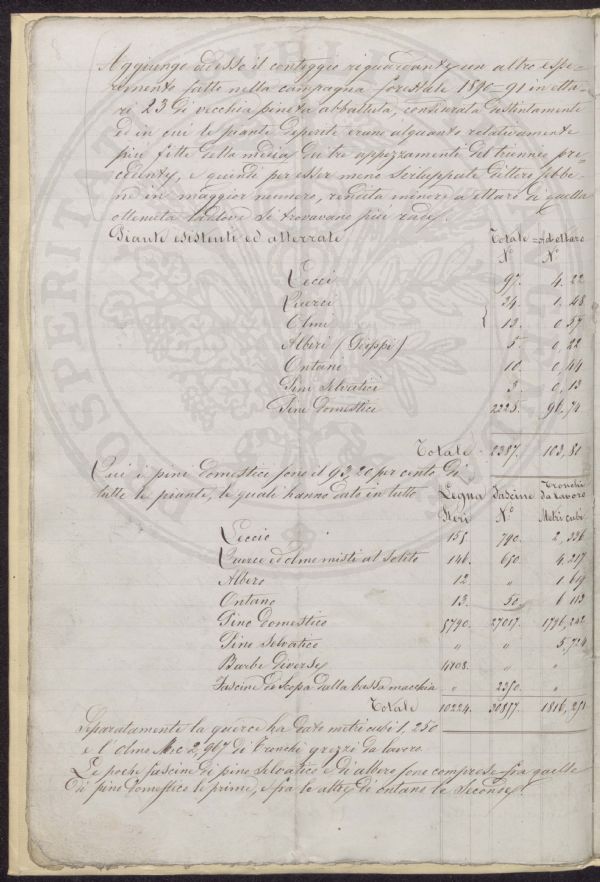 Aggiungo adesso il conteggio riguardante un altro espe-
rimento fatto nella campagna forestale 1890-91 in etta-
ri 23 di vecchia pineta abbattuta, considerata distintamente
ed in cui le piante deperite erano alquanto relativamente
più fitte della media dei tre appezzamenti del triennio pre-
cedente, e quindi per esser meno sviluppate dettero sebbe-
ne in maggior numero, rendita minore a ettaro di quella
ottenuta laddove si trovavano più rade.
Piante esistenti ed atterrate Totale = Ad ettaro
N.° N.°
Lecci 97. 4. 22
Querci 34. 1. 48
Olmi 13. 0. 57
Alberi (Gioppi) 5. 0, 22
Ontani 10. 0, 44
Pini selvatici 3. 0, 13
Pini domestici 2225. 96, 74
Totale 2387. 103, 80
Qui i pini domestici sono il 93,20 per cento di
tutte le piante, le quali hanno dato in tutto
Legna Fascine Tronchi da lavoro
Steri N.° Metri cubi
Leccio 155. 790. 2. 336
Querce ed olmo misti al solito 146. 650. 4. 217
Albero 12 " 1. 619
Ontano 13. 50. 6 113
Pino domestico 5790. 27017. 1796, 242
Pino selvatico " " 5. 724
Barbe diverse 4108. " "
Fascine di scopa dalla bassa macchia " 2350. "
Totale 10224. 30857. 1816, 251
Separatamente la querce ha dato metri cubi 1, 250
e l'olmo M.c 2, 967 di tronchi grezzi da lavoro.
Le poche fascine di pino selvatico e di albero sono comprese fra quelle
di pino domestico le prime, e fra le altre di ontano le seconde.
PROSPERITAT